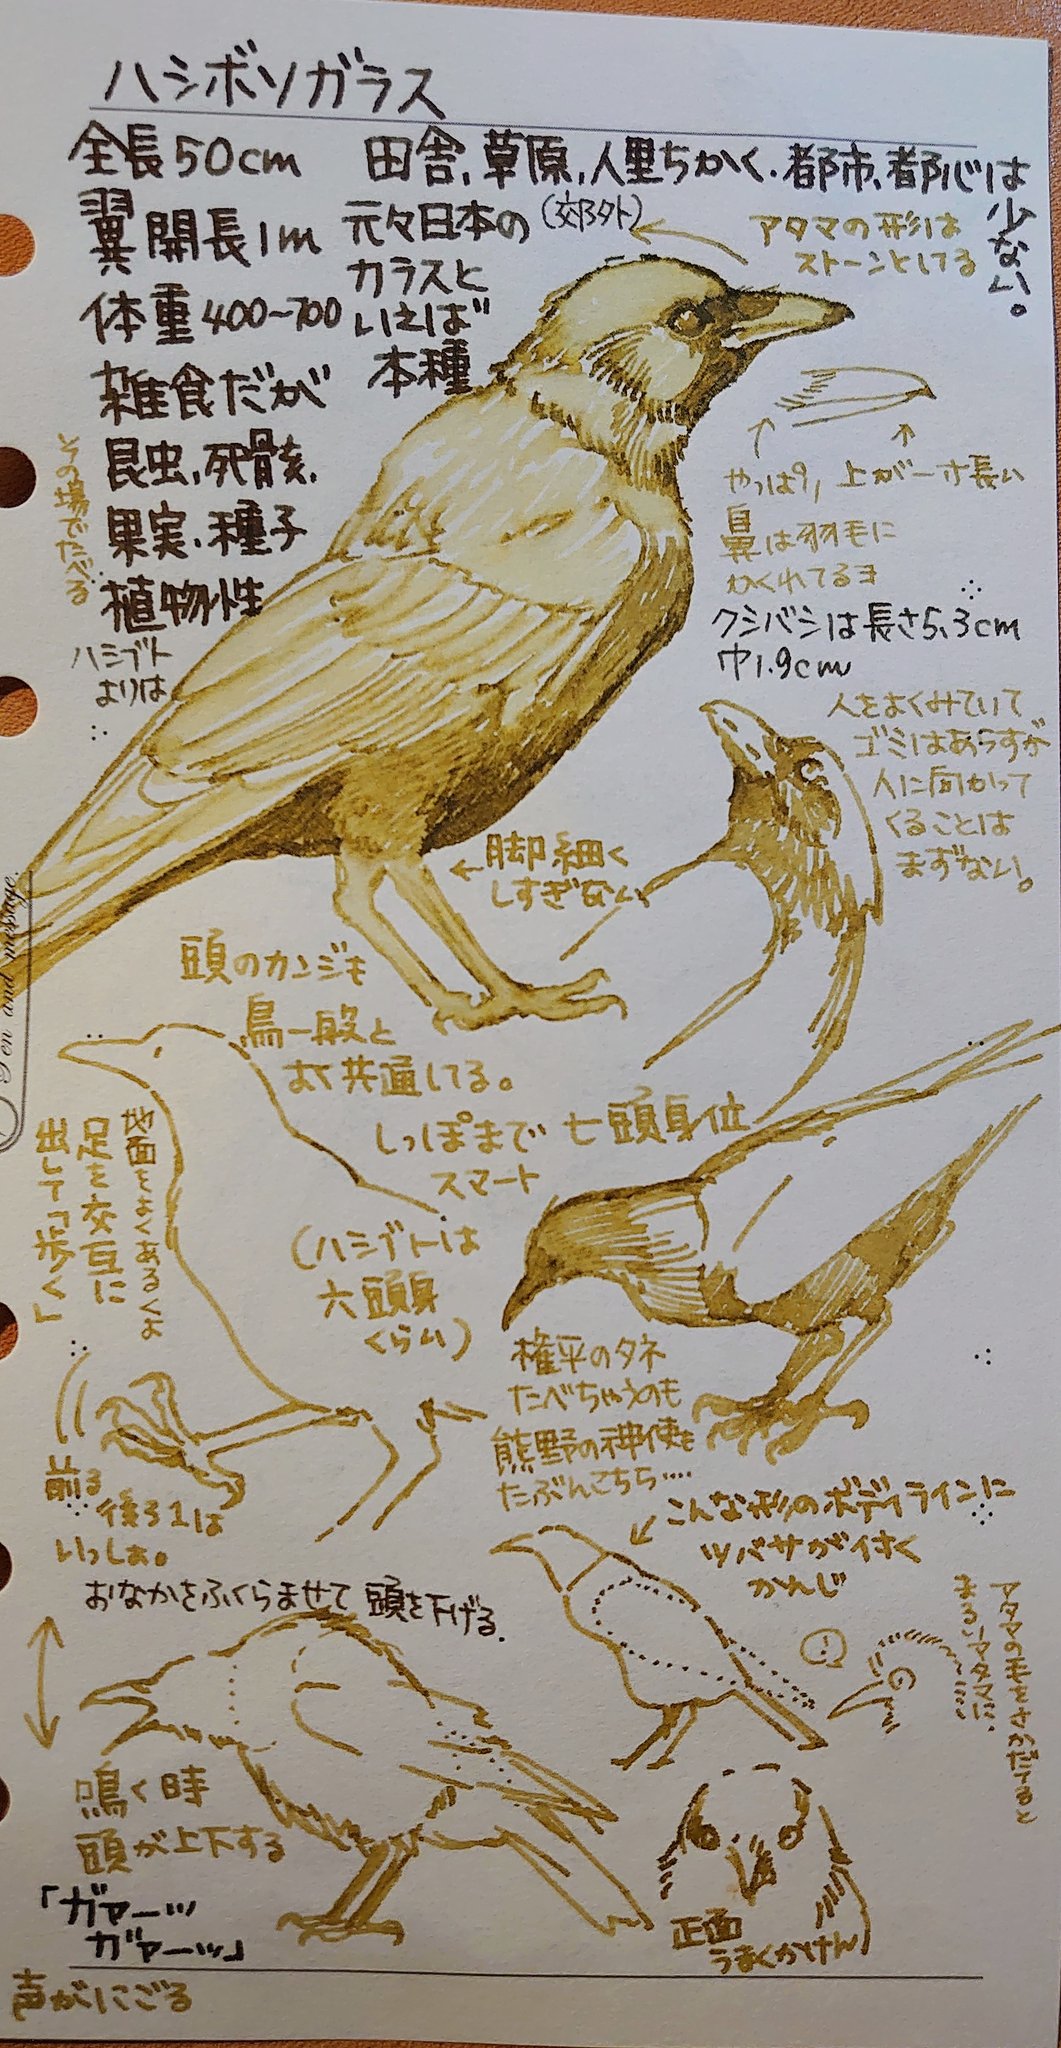 ハシボソガラス
全長50cm
翼開長1m
体重400~700
雑食だが
昆虫、死骸、
果実、種子
植物性
ハシブト
よりは
その場でたべる
田舎、草原、人里ちかく、都市、都心は
少ない。
(郊外)
元々日本の
カラスと
いえば
本種
アタマの形は
ストーンとしてる
やっぱり、上が一寸長い
鼻は羽毛に
かくれてるヨ
クシバシは長さ5.3cm
巾1.9cm
人をよくみていて
ゴミはあらすが
人に向かって
くることは
まずない。
←脚細く
しすぎない
頭のカンジも
鳥一般と
よく共通してる。
しっぽまで
スマート
七頭身位
(ハシブトは
六頭身
くらい)
地面をよくあるくよ
足を交互に
出して「歩く」
前3
後ろ1は
いっしょ。
権平のタネ
たべちゃうのも
熊野の神使も
たぶんこちら....
こんな形のボディラインに
ツバサが付く
かんじ
!
アタマの毛をさかだてると
まるいアタマに、
おなかをふくらませて頭を下げる。
鳴く時
頭が上下する
「ガァーッ
ガァーッ」
声がにごる
正面
うまくかけん
Pen and message.